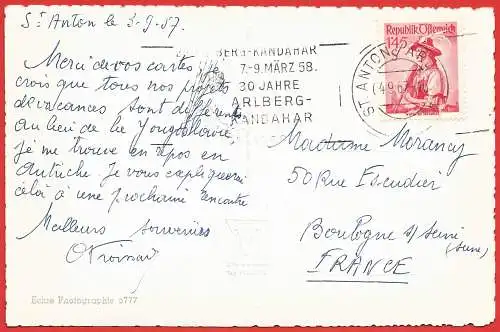 St Anton le 3-9-57
Merci de vos cartes, je
crois que tous nos projets
de vacances sont différents
au lieu de la Yougoslavie,
je me trouve en repos en
Autriche. Je vous expliquerai
celà à une prochaine rencontre
Meilleurs souvenirs
Echte Photographie 5777
BERG-KANDAHAR
7.-9. MÄRZ 58.
30 JAHRE
ARLBERG-
KANDAHAR
ST. ANTON
Republik Österreich
1.45
Madame Morancy
50 Rue Escudier
Boulogne s/ Seine
(Seine)
FRANCE